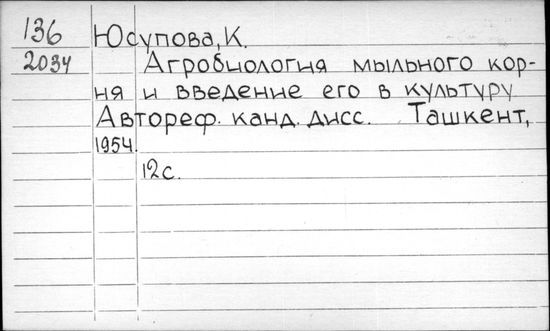 136 Юсупова, К.
2034 Агробиология мыльного кор-
ня и введение его в культуру
Автореф. канд. дисс. Ташкент,
1954.
12с.